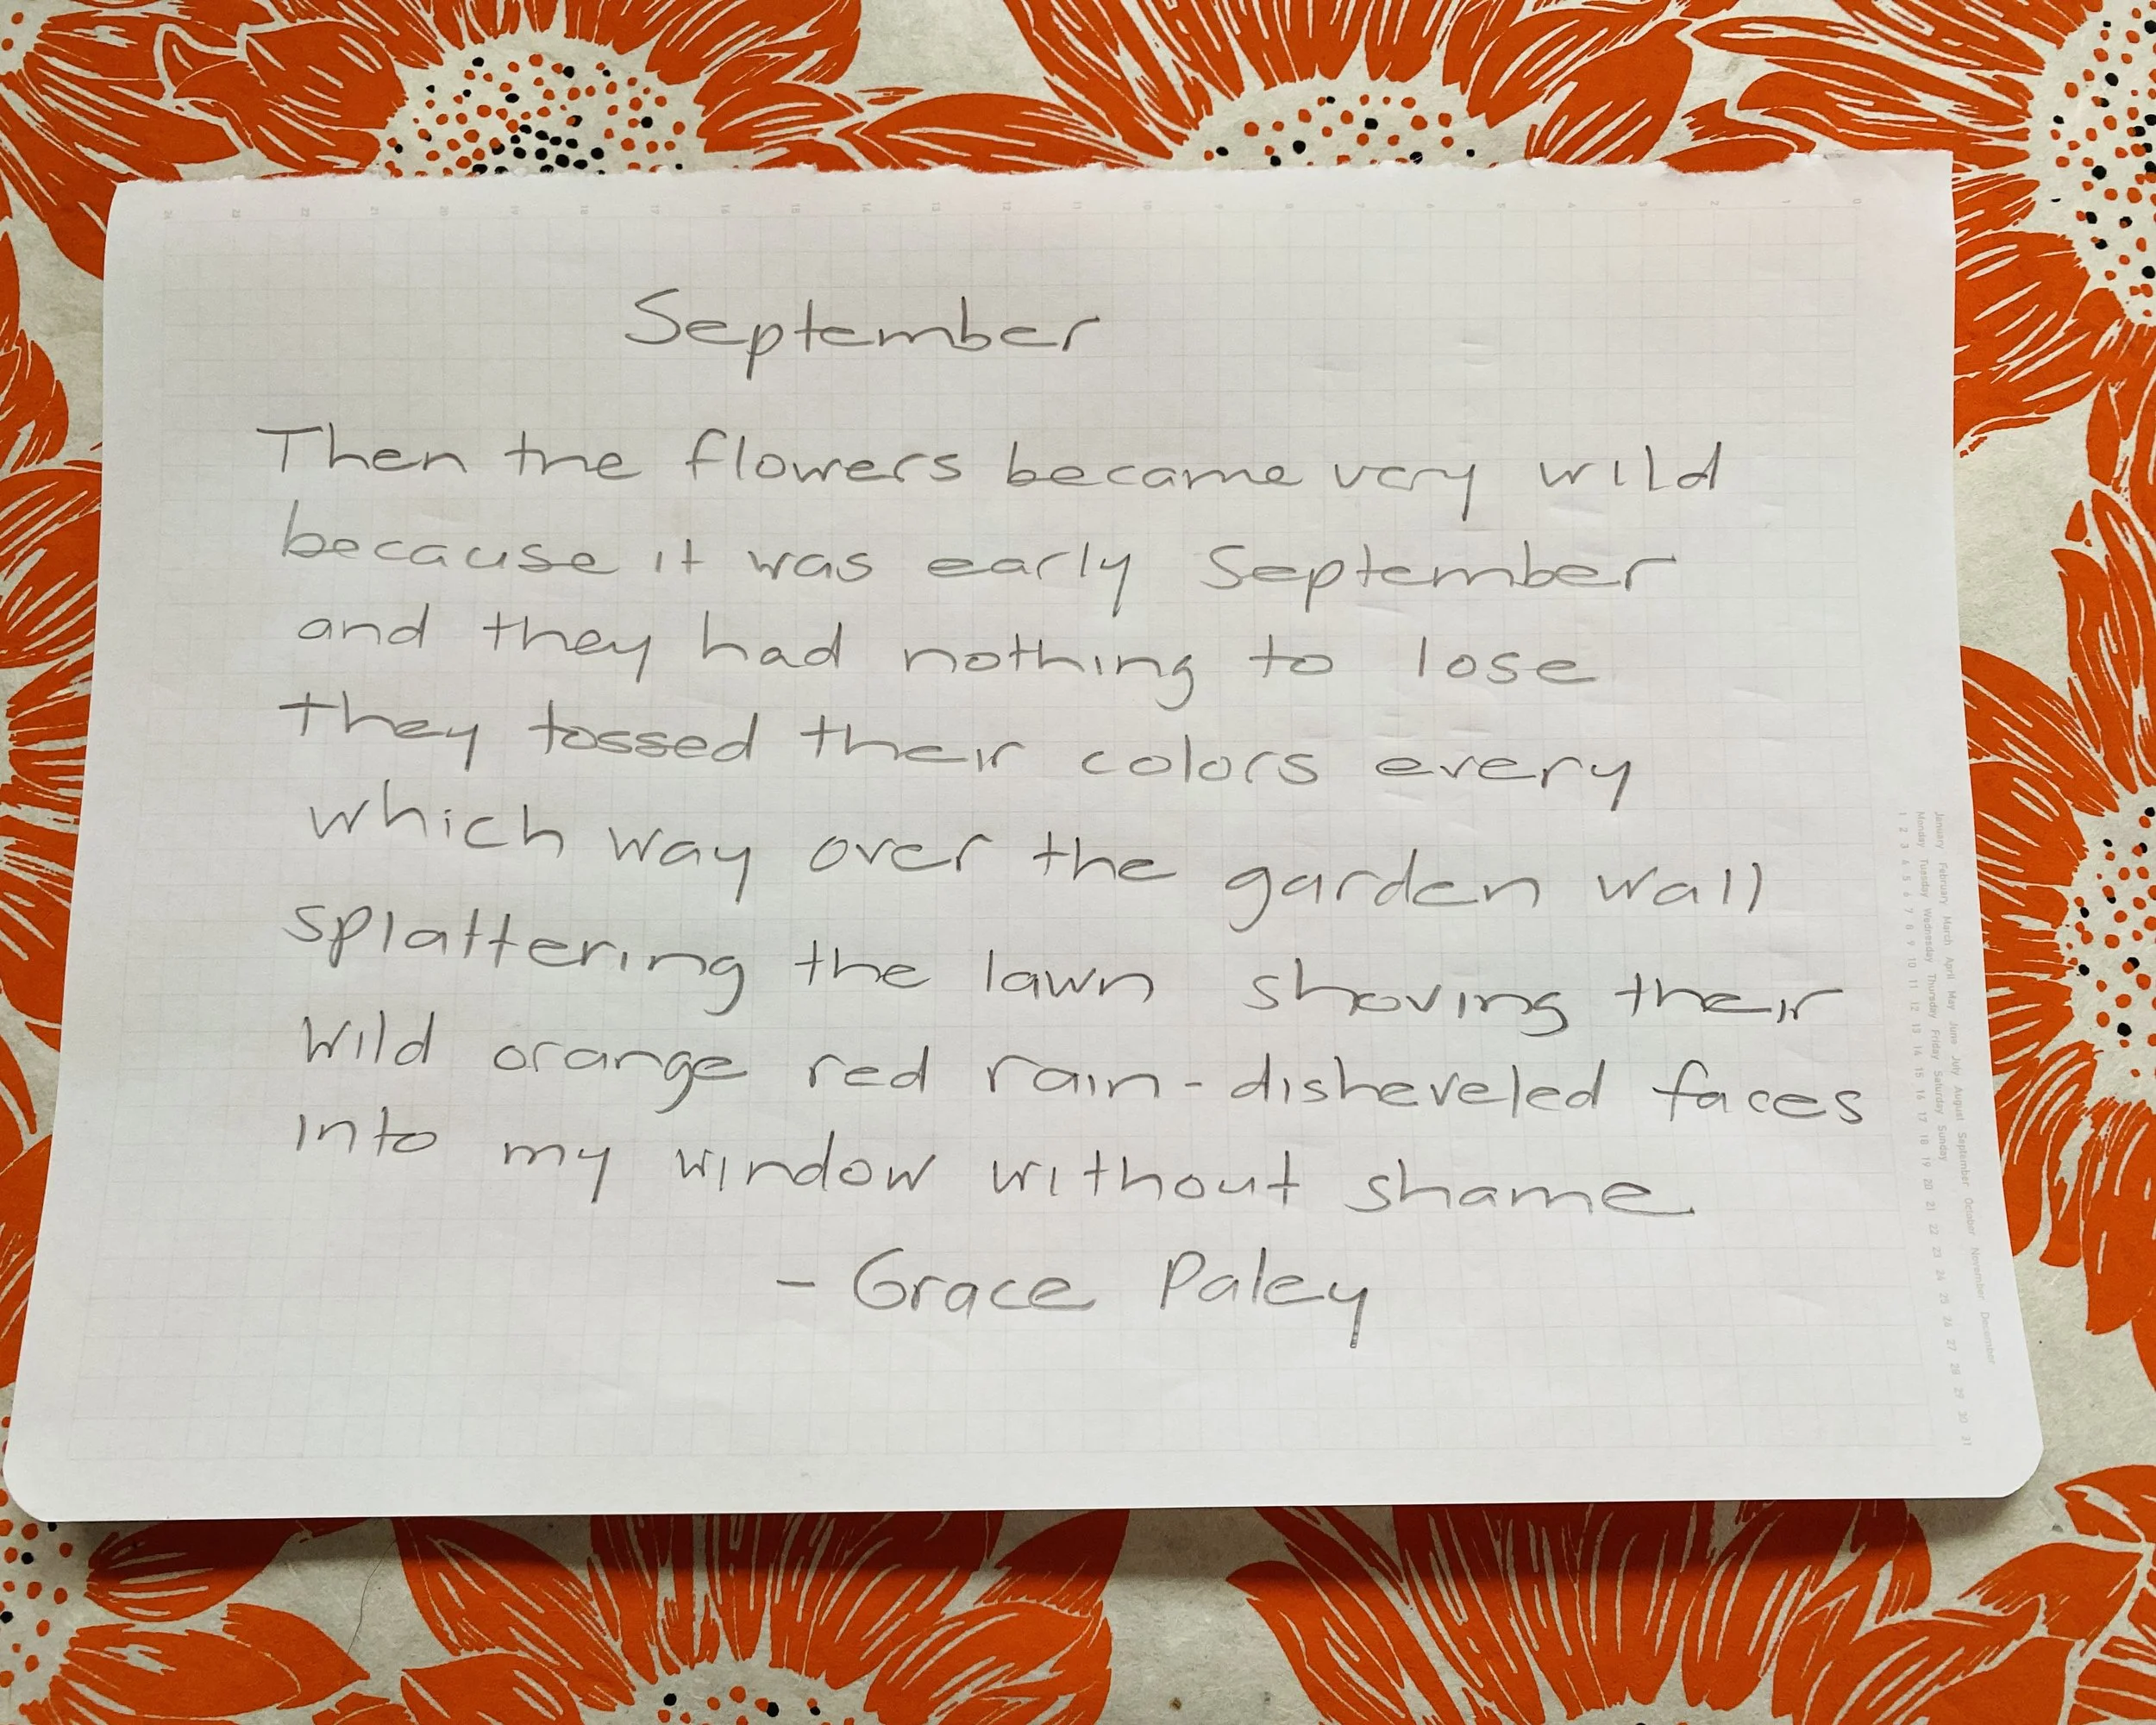 24 23 22 21 20 19 18 17 16 15 14 13 12 11 10 9 8 7 6 5 4 3 2 1 0
September
Then the flowers became very wild
because it was early September
and they had nothing to lose
they tossed their colors every
which way over the garden wall
splattering the lawn shoving their
wild orange red rain-disheveled faces
into my window without shame.
- Grace Paley
January February March April May June July August September October November December
Monday Tuesday Wednesday Thursday Friday Saturday Sunday
1 2 3 4 5 6 7 8 9 10 11 12 13 14 15 16 17 18 19 20 21 22 23 24 25 26 27 28 29 30 31